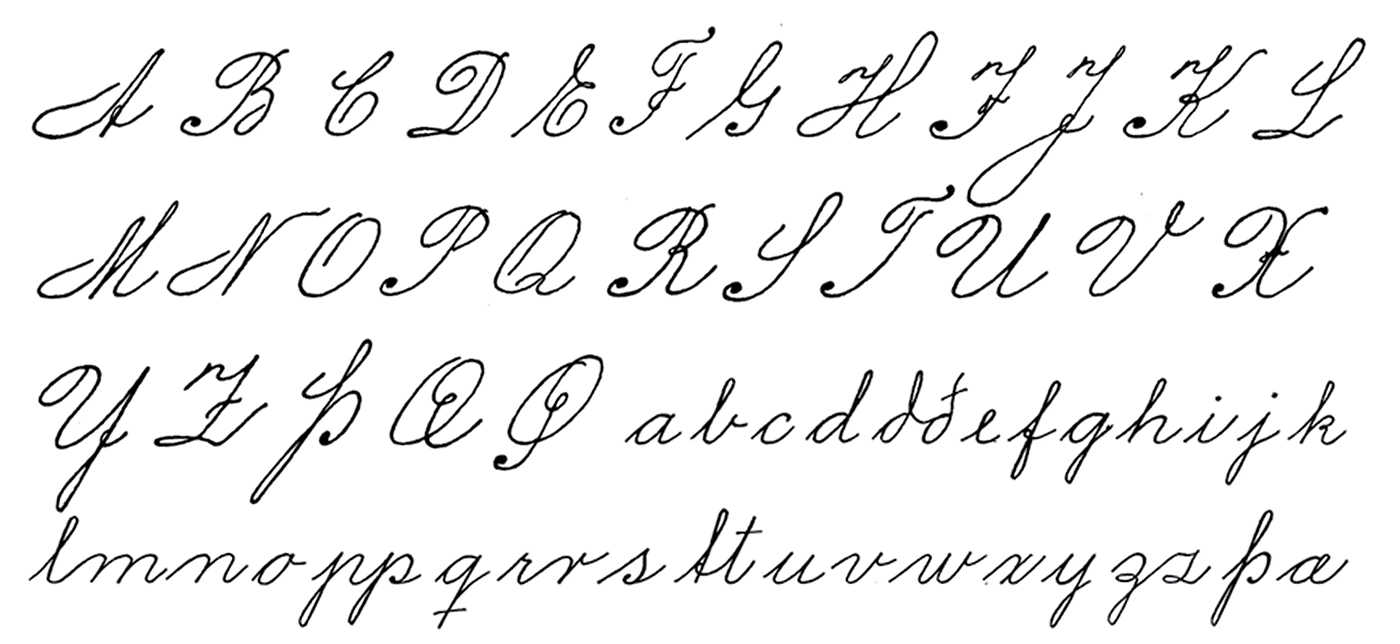 A B C D E F G H I J K L
M N O P Q R S T U V X
Y Z Þ Æ Ö a b c d d ð e f g h i j k
l m n o p p q r r s ſ t u v w x y z z þ æ